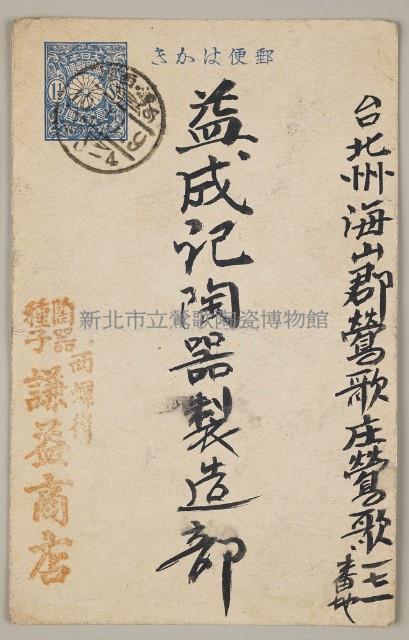 郵便はかき
1½
台北州海山郡鶯歌庄鶯歌
一七一番地
益成記陶器製造部
陶器
種子
西螺街
謙益商店
新北市立鶯歌陶瓷博物館